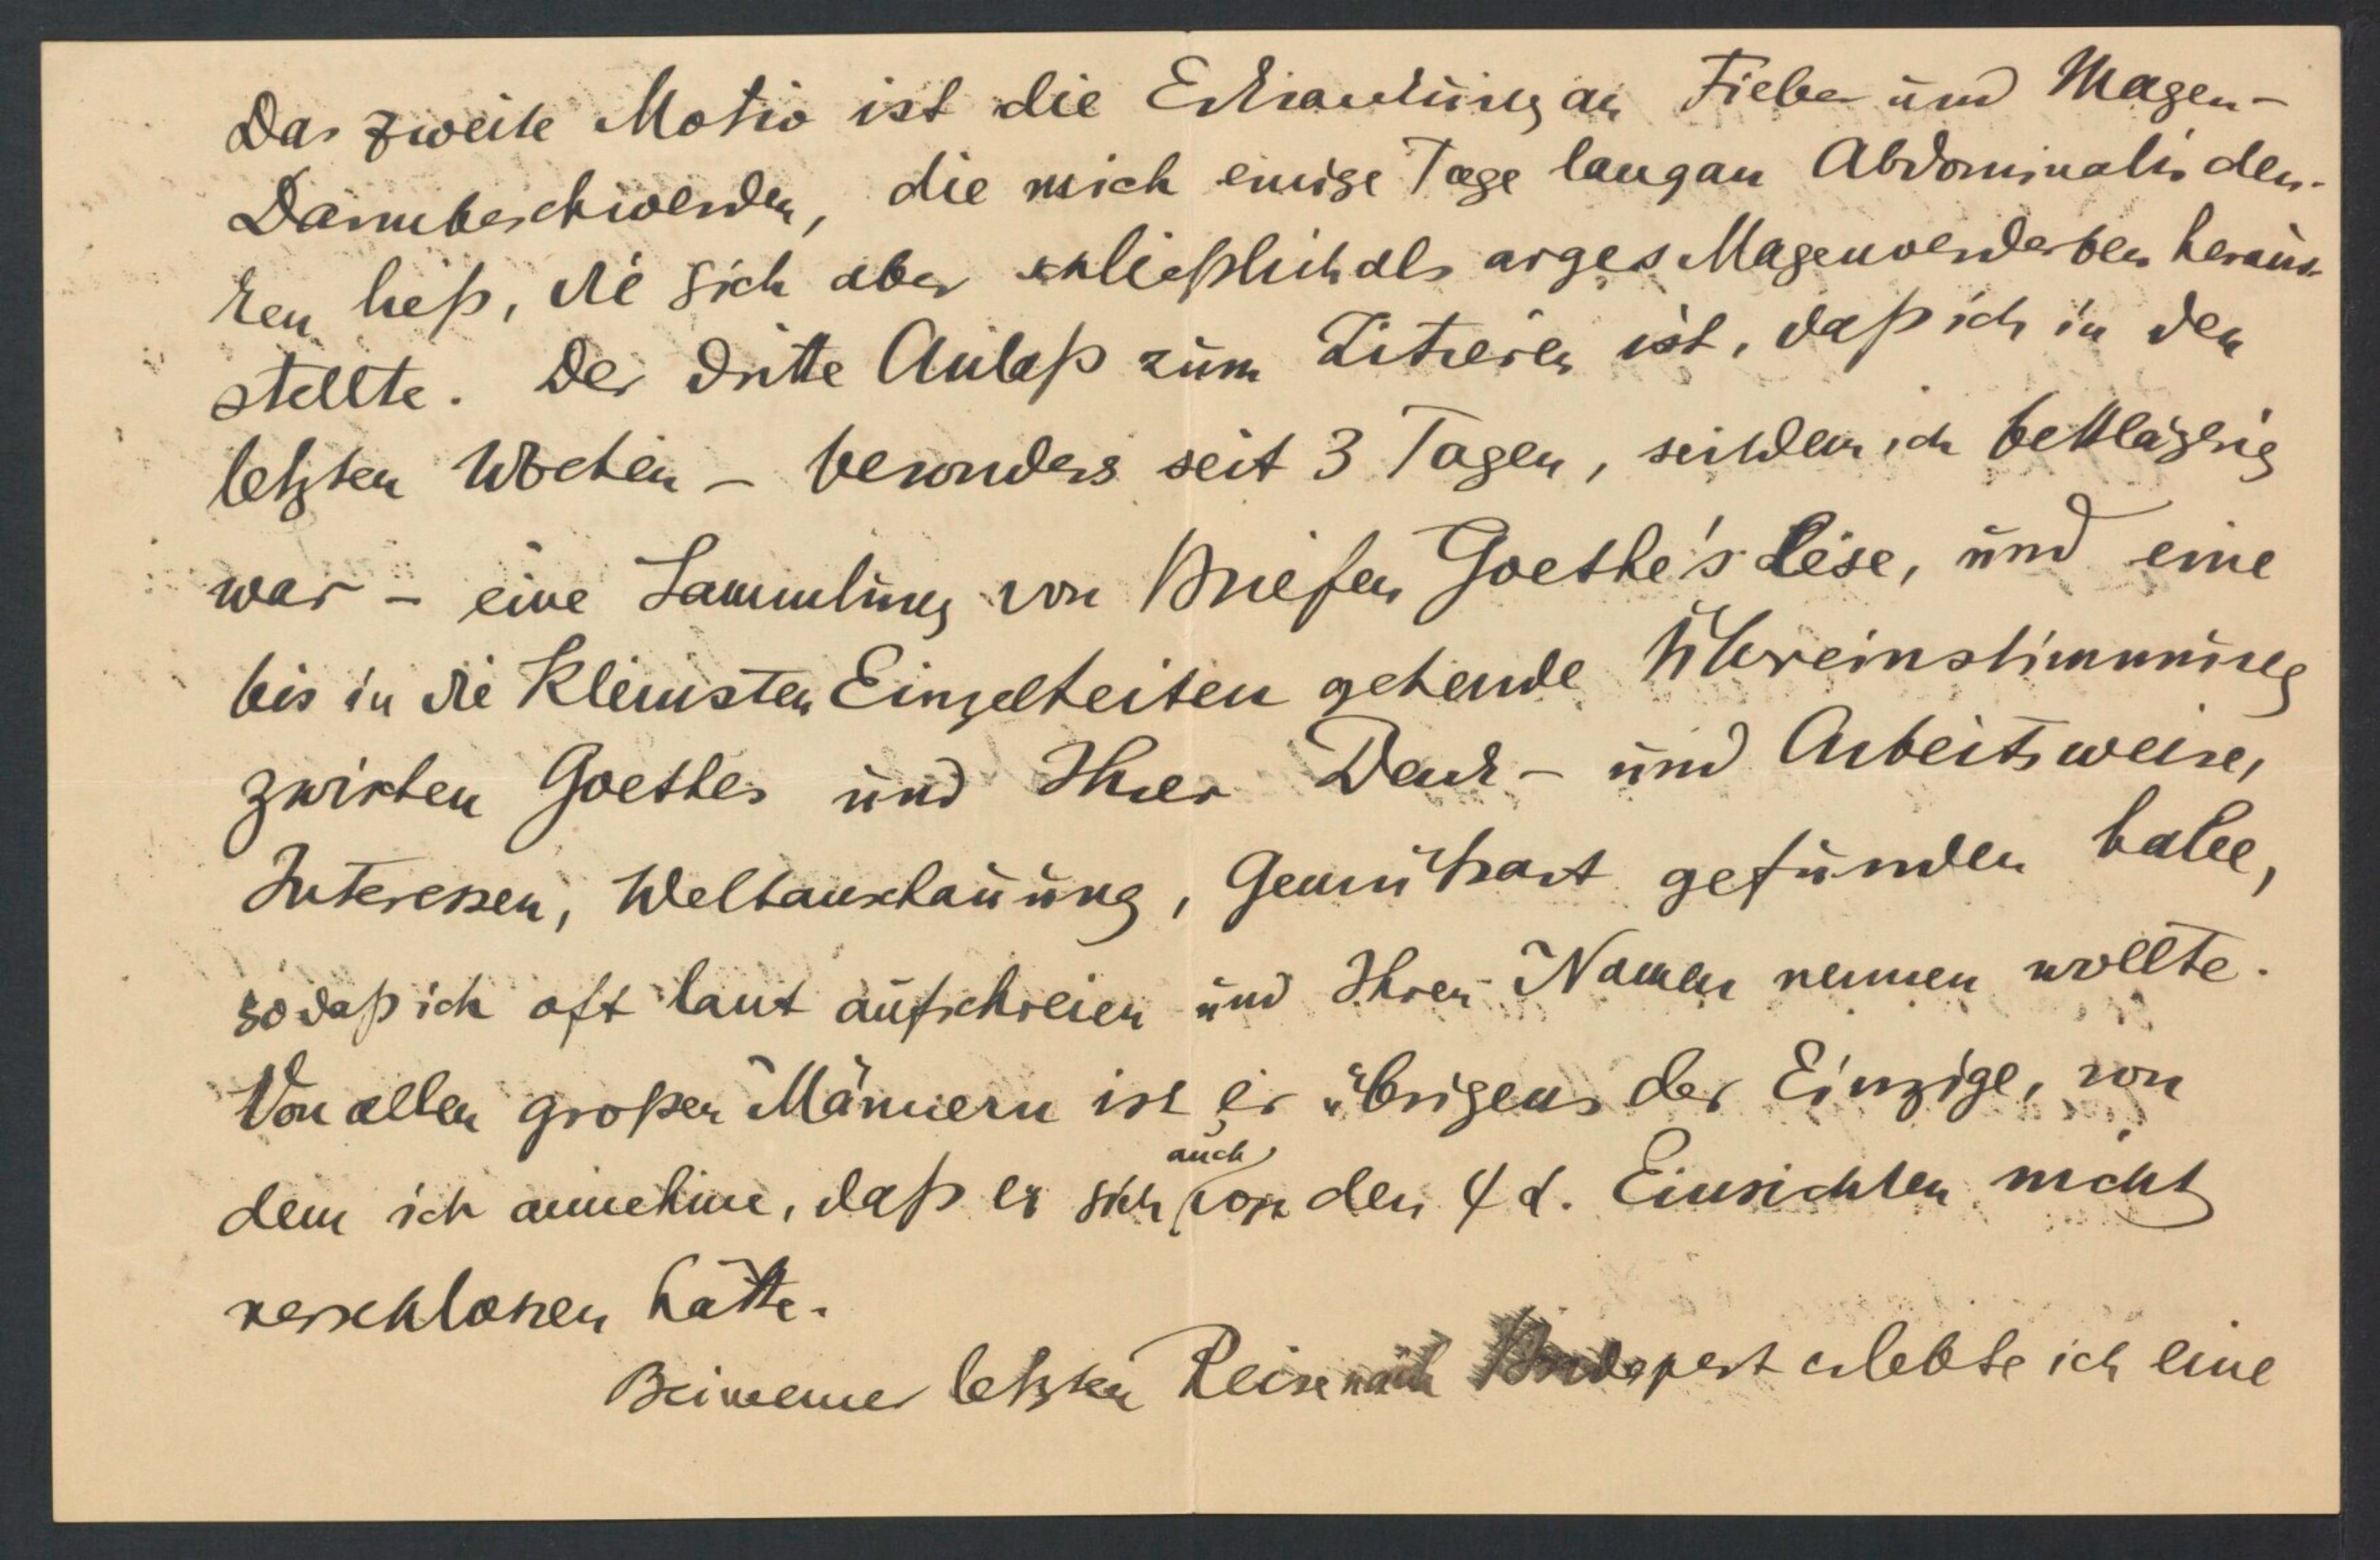 Das zweite Motiv ist die Erkrankung an Fieber und Magen-
Darmbeschwerden, die mich einige Tage lang an Abdominalis den-
ken ließ, die sich aber schließlich als arges Magenverderben heraus-
stellte. Der dritte Anlaß zum Zitieren ist, daß ich in den
letzten Wochen – besonders seit 3 Tagen, seitdem ich bettlägerig
war – eine Sammlung von Briefen Goethe's lese, und eine
bis in die kleinsten Einzelheiten gehende Übereinstimmung
zwischen Goethes und Ihrer Denk- und Arbeitsweise,
Interessen, Weltanschauung, Gemütsart gefunden habe,
sodaß ich oft laut aufschreien und Ihren Namen nennen wollte.
Von allen großen Männern ist er übrigens der Einzige, von
dem ich annehme, daß er sich auch von den Einsichten nicht
verschlossen hätte.
Bei meiner letzten Reise nach Budapest erlebte ich eine